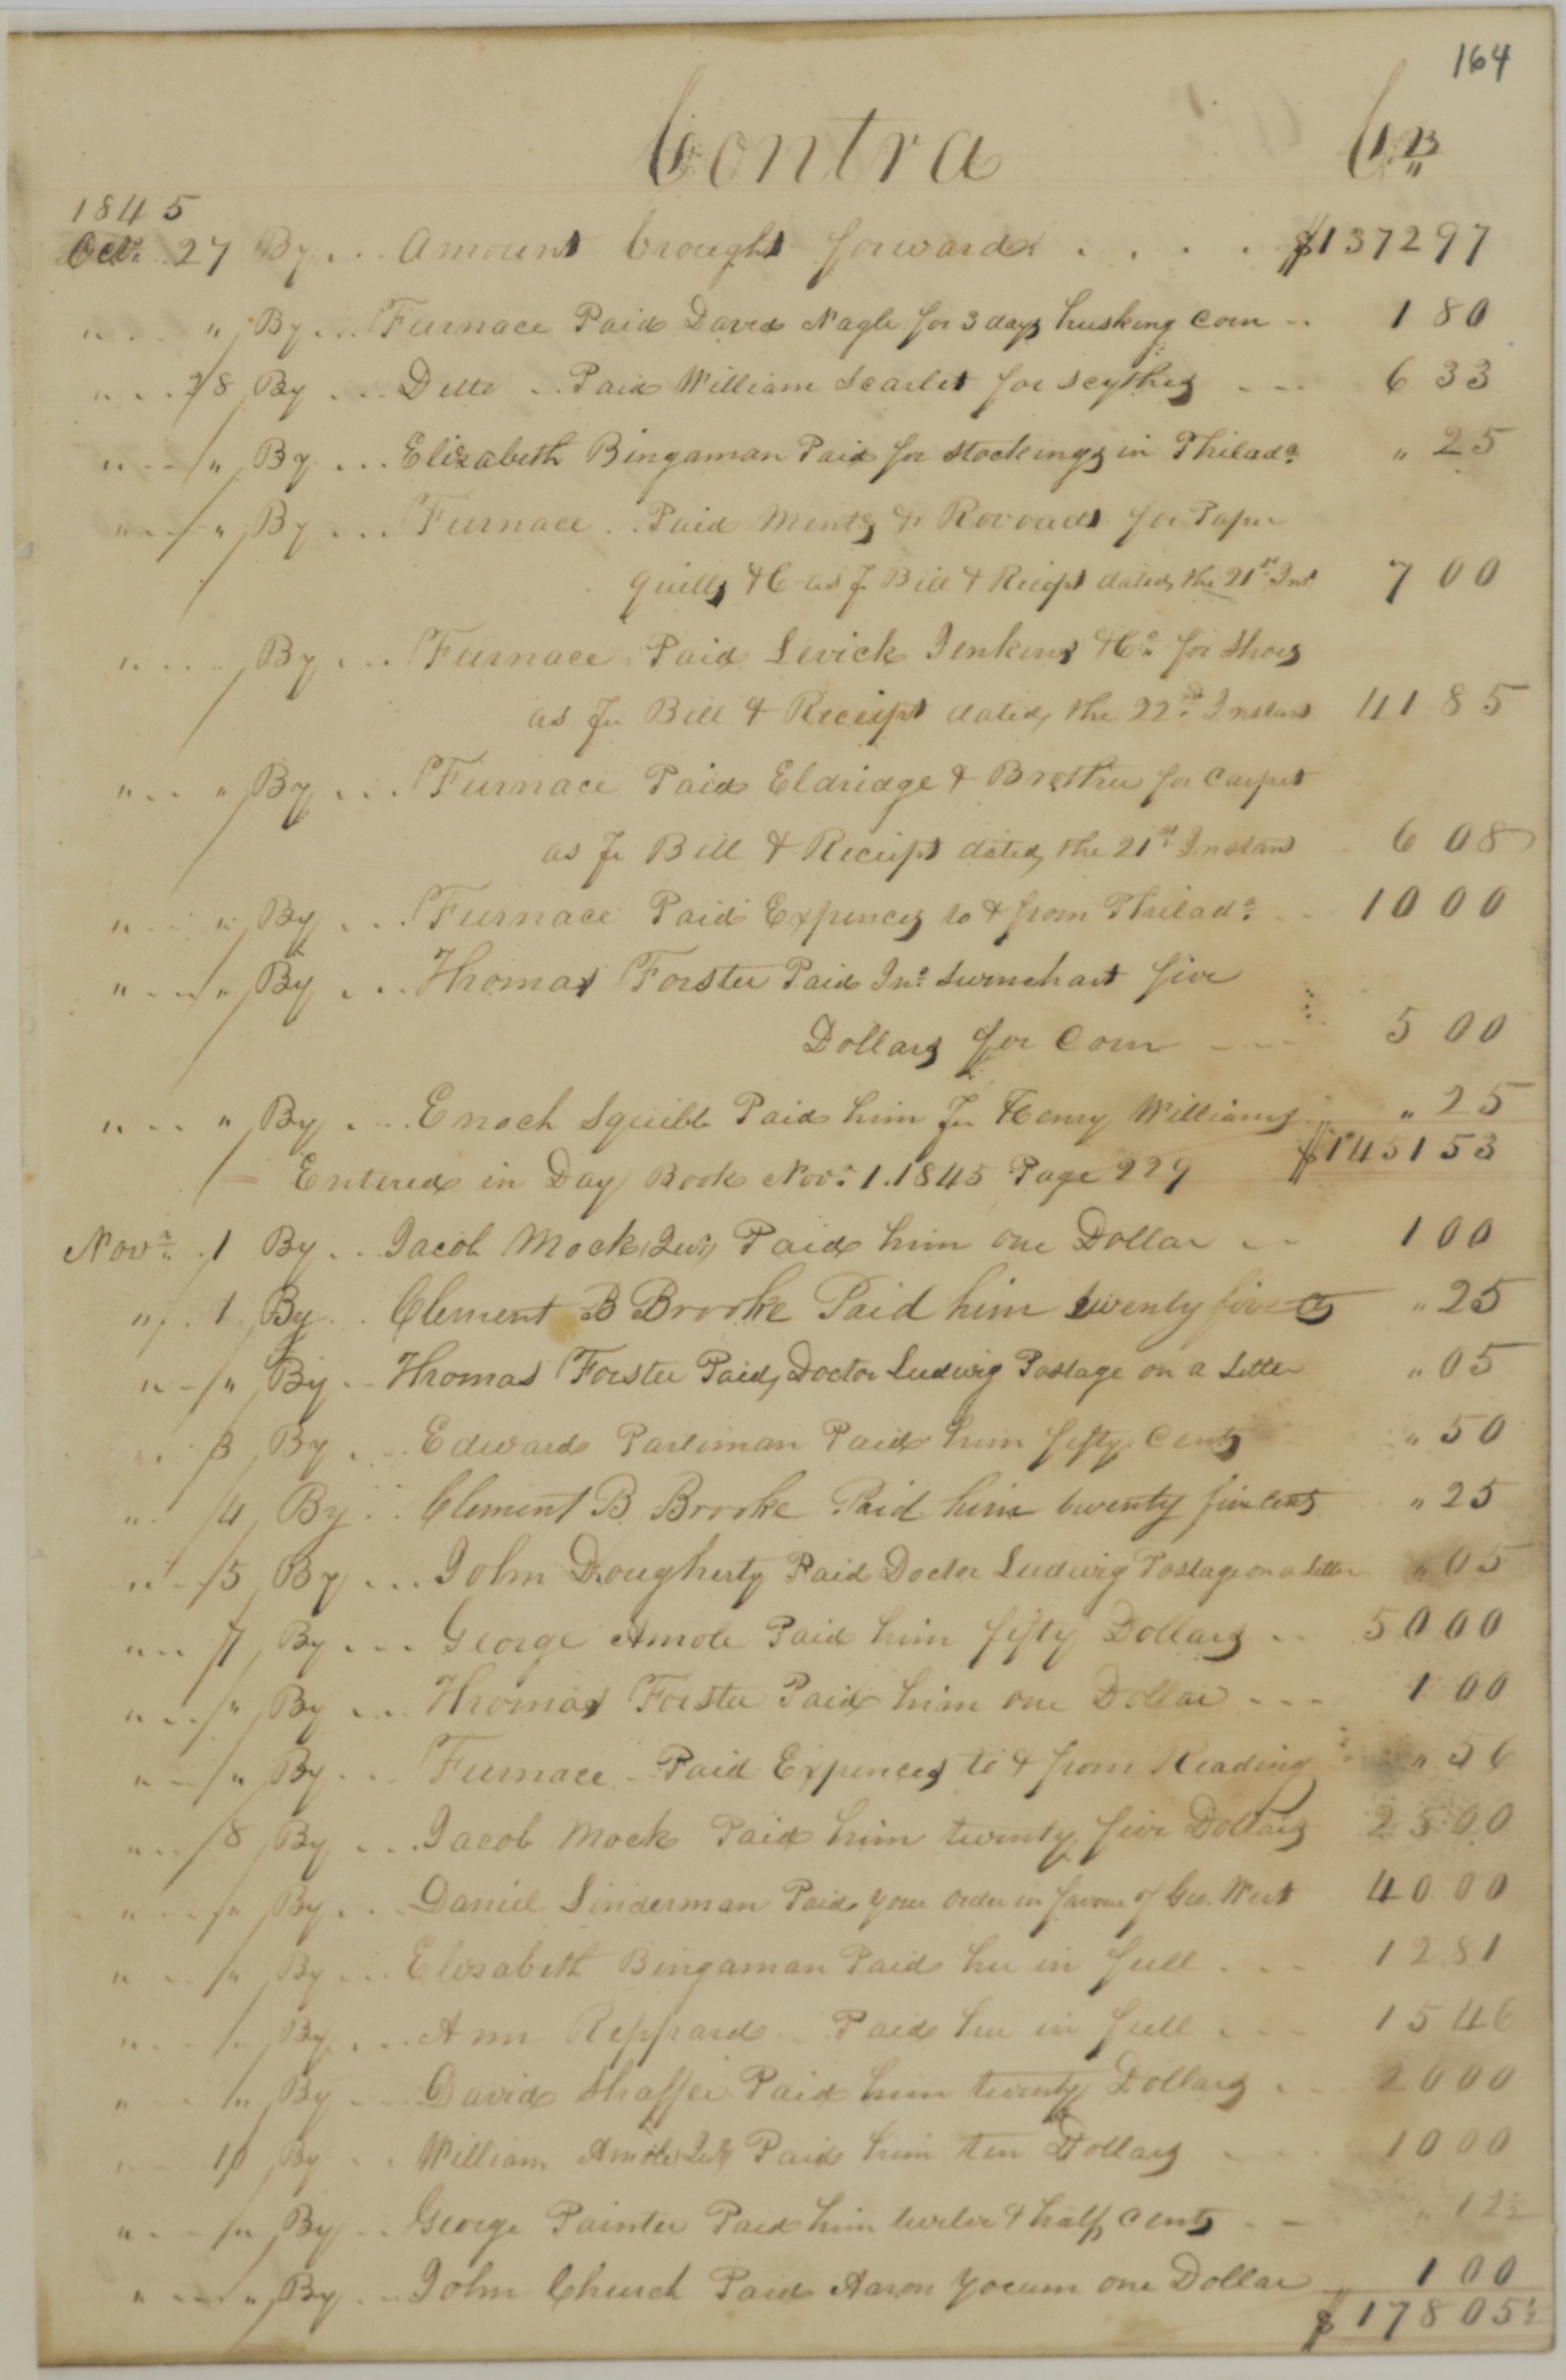 164
Contra Cr
1845
Octr. 27 By... Amount brought forward . . . . $1372 97
" " By... Furnace Paid David Nagle for 3 days husking Corn .. 1 80
" 28 By... Ditto .. Paid William Scarlet for Scythes --- 6 33
" " By... Elizabeth Bingaman Paid for stockings in Philada. " 25
" " By... Furnace .. Paid Mentz & for Paper
quills &C as pr Bill & Recept dated the 21st Inst 7 00
" By... Furnace Paid Levick Jenkins & Co. for Shoes
as pr Bill & Receipt dated the 22nd Instant 41 85
" " By... Furnace Paid Eldridge & Brother for Carpet
as pr Bill & Receipt dated the 21st Instant 6 08
" " By... Furnace Paid Expences to & from Philada. 10 00
" " By... Thomas Forster Paid Jno. Swinehart five
Dollars for Corn --- 5 00
" " By... Enoch Squibb Paid him pr Henry Williams " 25
Entered in Day Book Novr. 1. 1845 Page 229 $1451 53
Novr. 1 By.. Jacob Mock Paid him one Dollar -- 1 00
" 1 By.. Clement B Brooke Paid him twenty five cts " 25
" " By.. Thomas Forster Paid Doctor Ludwig Postage on a Letter " 05
" 3 By.. Edward Parliman Paid him fifty Cents " 50
" 4 By.. Clement B Brooke Paid him twenty five cents " 25
" 5 By... John Dougherty Paid Doctor Ludwig Postage on a Letter " 05
" 7 By... George Amole Paid him fifty Dollars .. 50 00
" " By... Thomas Forster Paid him one Dollar --- 1 00
" " By... Furnace Paid Expences to & from Reading " 56
" 8 By... Jacob Mock Paid him twenty five Dollars 25 00
" " By... Daniel Linderman Paid your order in favour of Geo. West 40 00
" " By... Elizabeth Bingaman Paid her in full . . . 12 81
" " By... Ann Reppard Paid her in full . . . 15 46
" " By... David Shaffer Paid him twenty Dollars . 20 00
10 By.. William Amole Paid him ten Dollars 10 00
" " By.. George Painter Paid him twelve & half Cents -- " 12½
" " By.. John Church Paid Aaron Yocum one Dollar 1 00
$178 05½